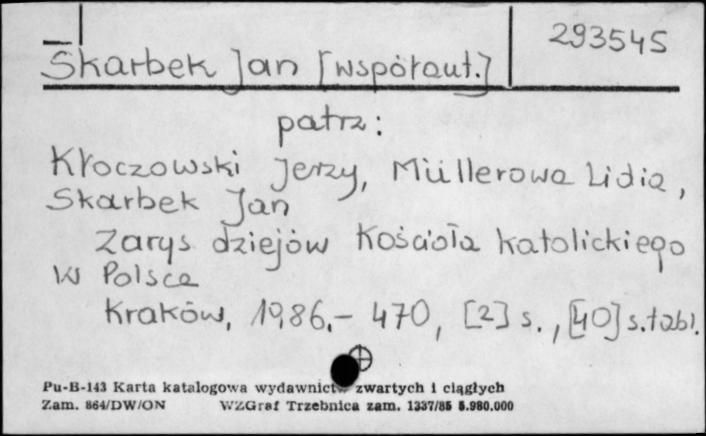 293545
Skarbek Jan [współaut.]
patrz:
Kłoczowski Jerzy, Müllerowa Lidia,
Skarbek Jan
Zarys dziejów Kościoła katolickiego
w Polsce
Kraków, 1986.- 470, [2] s., [40] s.tabl.
Pu-B-143 Karta katalogowa wydawnictw zwartych i ciągłych
Zam. 864/DW/ON WZGraf Trzebnica zam. 1337/85 5.980.000